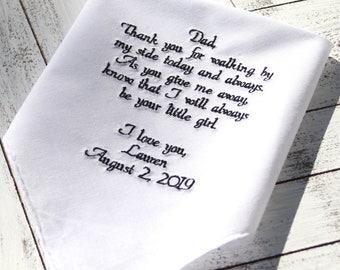 Dad,
Thank you for walking by
my side today and always.
As you give me away,
know that I will always
be your little girl.
I love you,
Lauren
August 2, 2019